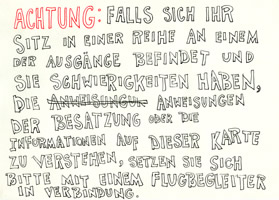 ACHTUNG: FALLS SICH IHR
SITZ IN EINER REIHE AN EINEM
DER AUSGÄNGE BEFINDET UND
SIE SCHWIERIGKEITEN HABEN,
DIE ANWEISUNGUN ANWEISUNGEN
DER BESATZUNG ODER DIE
INFORMATIONEN AUF DIESER KARTE
ZU VERSTEHEN, SETZEN SIE SICH
BITTE MIT EINEM FLUGBEGLEITER
IN VERBINDUNG.